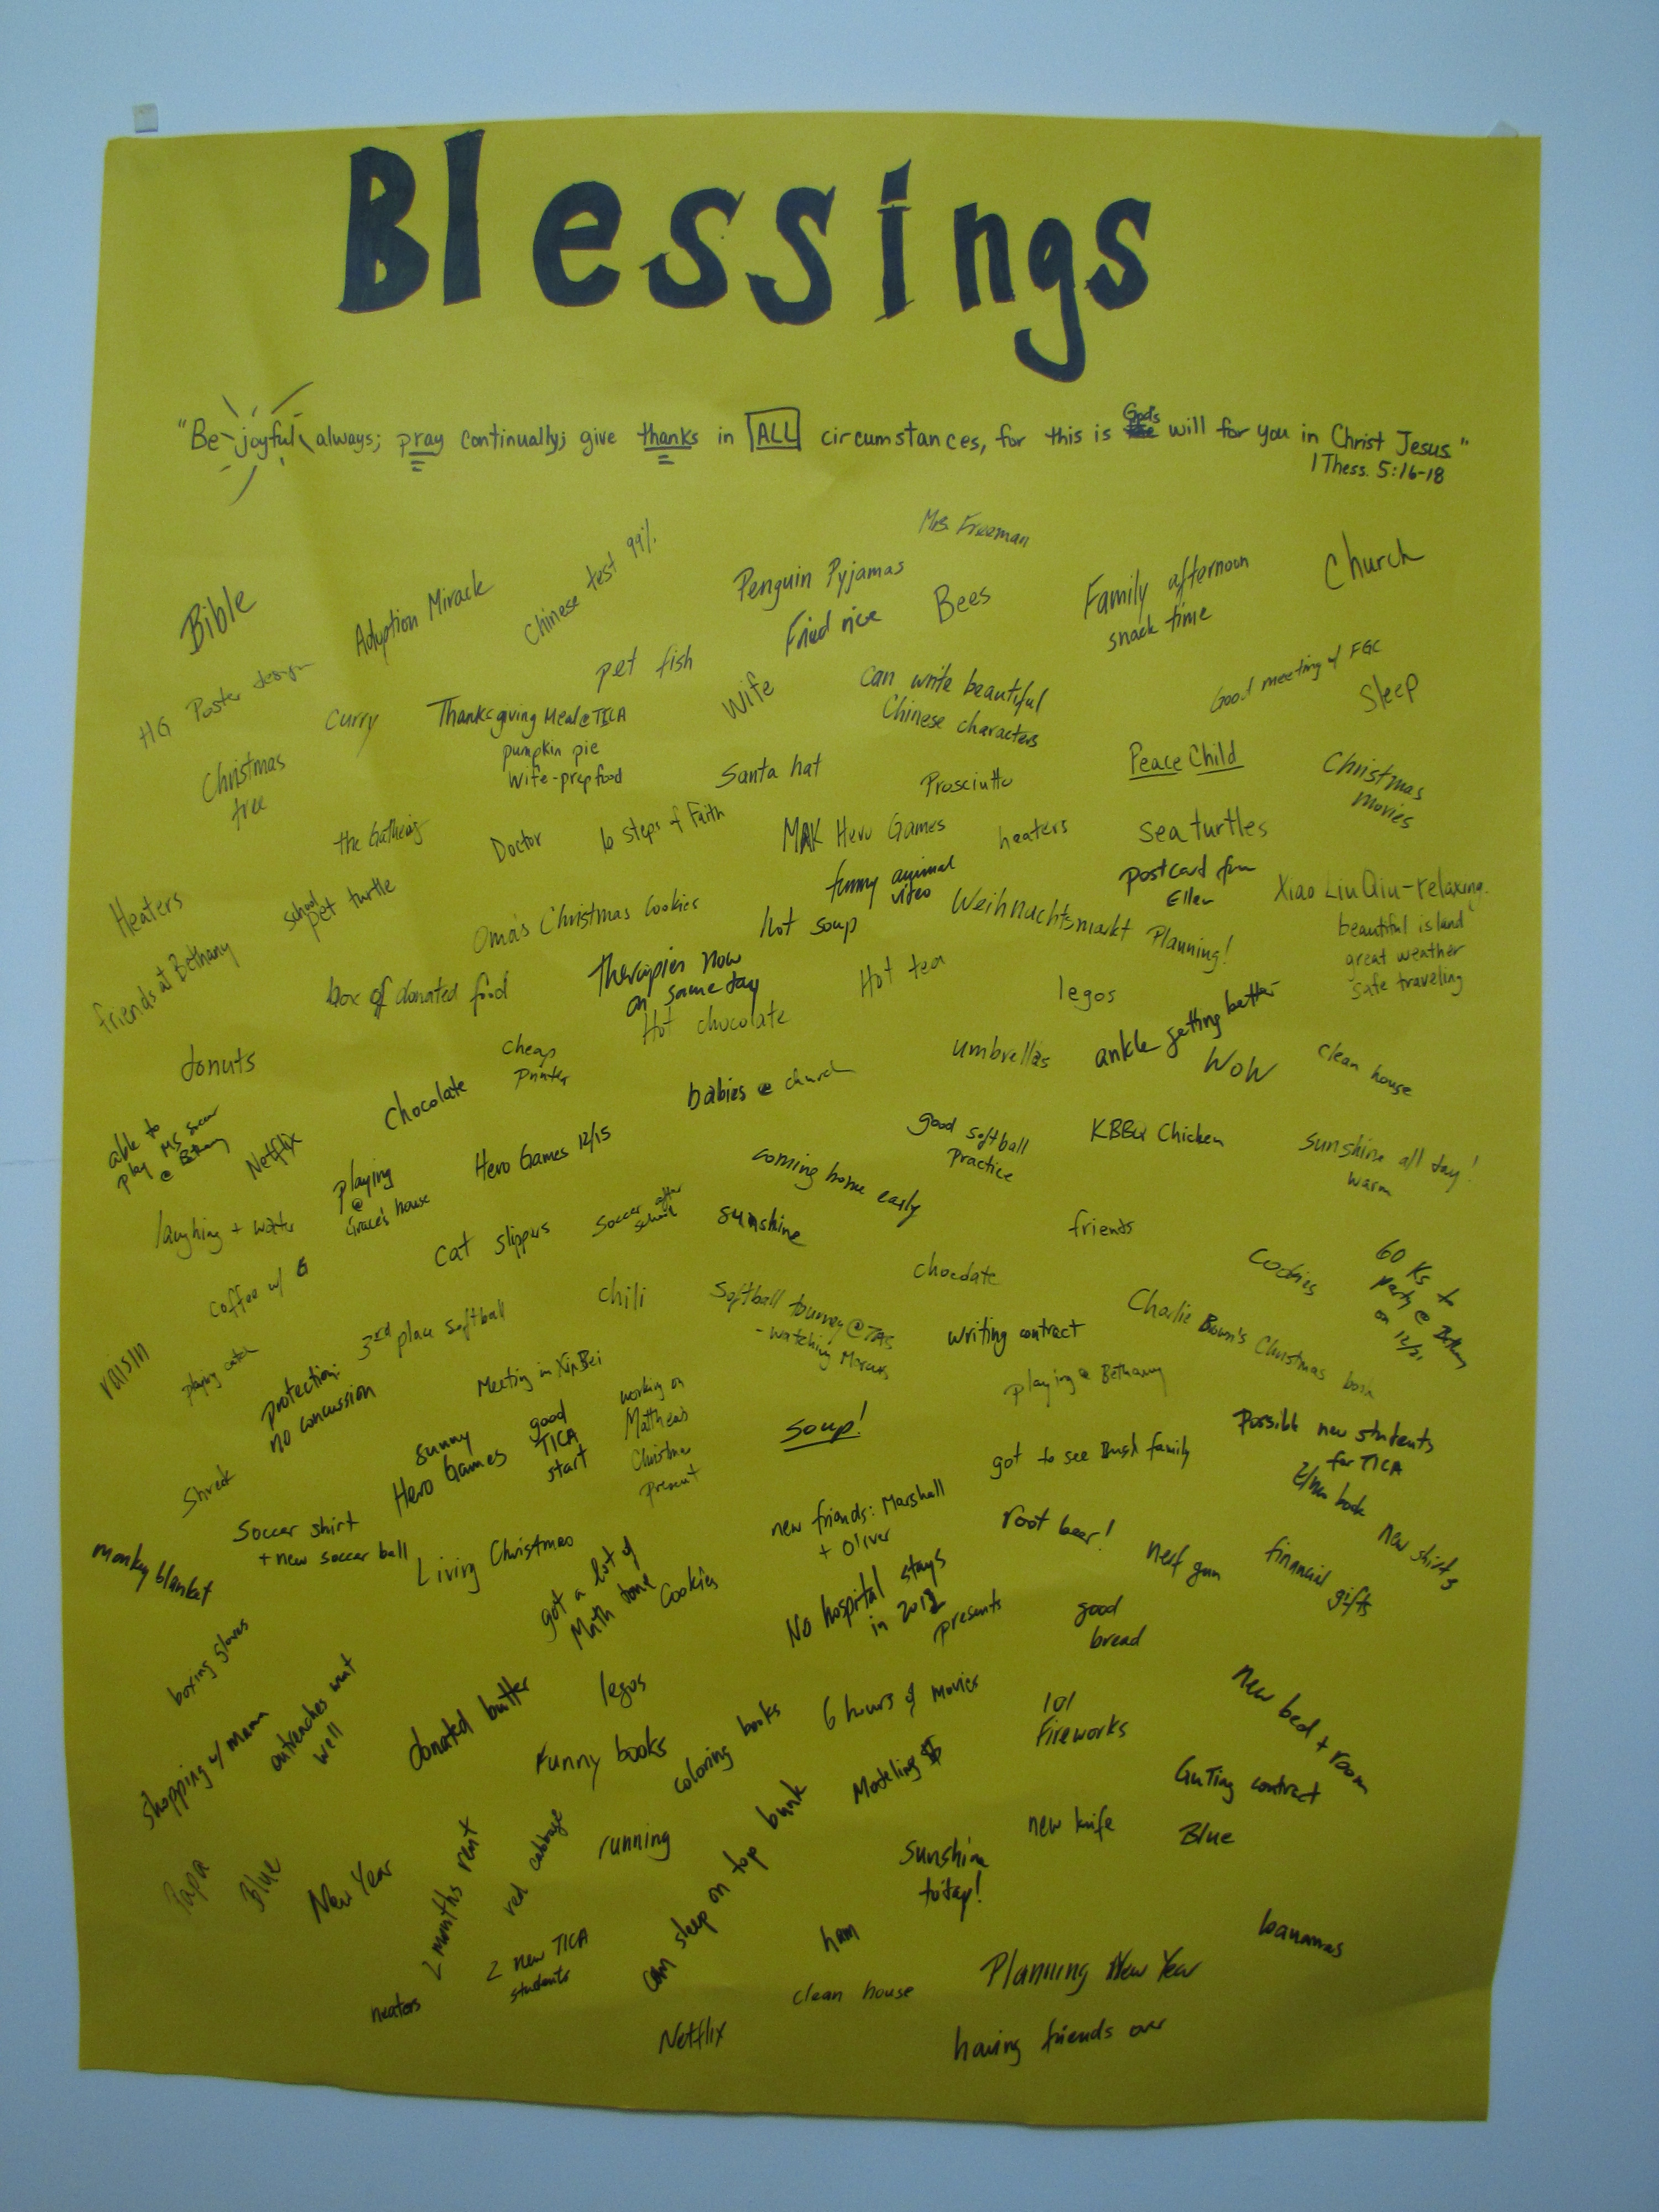 Blessings
"Be joyful always; pray continually; give thanks in ALL circumstances, for this is God's will for you in Christ Jesus."
1 Thess. 5:16-18
Mrs. Freeman
Bible
Adoption Miracle
Chinese test 99%
Penguin Pyjamas
Fried rice
Bees
Family afternoon
snack time
Church
HG Poster design
Curry
pet fish
Thanksgiving Meal @ TICA
pumpkin pie
wife-prep food
Wife
Can write beautiful
Chinese characters
Good meeting w/ FGC
Sleep
Christmas
tree
Santa hat
Prosciutto
Peace Child
Christmas
movies
the Gathering
Doctor
10 Steps of Faith
MAK Hero Games
heaters
sea turtles
Heaters
school
pet turtle
Oma's Christmas Cookies
funny animal
video
hot soup
Weihnachtsmarkt Planning!
postcard from
Ellen
Xiao Liu Qiu - relaxing.
beautiful island
great weather
safe traveling
friends at Bethany
box of donated food
Therapies now
on same day
Hot chocolate
Hot tea
legos
donuts
cheap
printer
Chocolate
babies @ church
umbrellas
ankle getting better
WoW
clean house
able to
play MS soccer
@ Bethany
Netflix
playing
@
Grace's house
Hero Games 12/15
coming home early
good softball
practice
KBBQ Chicken
sunshine all day!
warm
laughing + water
cat slippers
soccer after
school
sunshine
friends
coffee w/ G
chili
chocolate
Cookies
60 Ks to
party @ Bethany
on 12/21
raisin
playing catch
3rd place softball
Softball tourney @ TAS
- watching Marcus
writing contract
Charlie Brown's Christmas book
protection:
no concussion
Meeting in XinBei
playing @ Bethany
Shrek
sunny
Hero Games
good
TICA
start
working on
Matthea's
Christmas
present
soup!
got to see Bush family
Possible new students
for TICA
monkey blanket
Soccer shirt
+ new soccer ball
Living Christmas
new friends: Marshall
+ Oliver
root beer!
nerf gun
financial
gifts
new shirts
got a lot of
Math done
Cookies
No hospital stays
in 2012
presents
good
bread
boxing gloves
shopping w/ mama
outreaches went
well
donated butter
legos
Funny books
coloring books
6 hours of movies
101
Fireworks
new bed + room
Modeling $
GuTing contract
Papa
Blue
New Year
2 months rent
red cabbage
running
can sleep on top bunk
sunshine
today!
new knife
Blue
heaters
2 new TICA
students
ham
clean house
Planning New Year
bananas
Netflix
having friends over